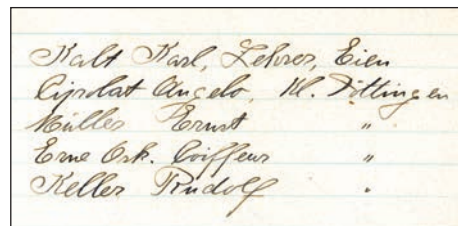 Kalt Karl, Lehrer, Eien
Cipolat Angelo, Kl. Döttingen
Müller Ernst "
Erne Osk. Coiffeur "
Keller Rudolf "